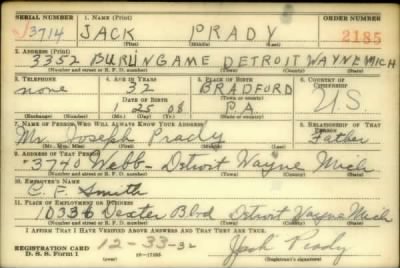 SERIAL NUMBER 1. NAME (Print) ORDER NUMBER
3714 JACK PRADY 2185
(First) (Middle) (Last)
2. ADDRESS (Print)
3352 BURLINGAME DETROIT WAYNE MICH
(Number and street or R. F. D. number) (Town) (County) (State)
3. TELEPHONE 4. AGE IN YEARS 5. PLACE OF BIRTH 6. COUNTRY OF CITIZENSHIP
none 32 BRADFORD U.S.
DATE OF BIRTH (Town or county)
25 08 PA
(Exchange) (Number) (Mo.) (Day) (Yr.) (State or country)
7. NAME OF PERSON WHO WILL ALWAYS KNOW YOUR ADDRESS 8. RELATIONSHIP OF THAT PERSON
Mr. Joseph Prady Father
(Mr., Mrs., Miss) (First) (Middle) (Last)
9. ADDRESS OF THAT PERSON
3740 Webb - Detroit Wayne Mich
(Number and street or R. F. D. number) (Town) (County) (State)
10. EMPLOYER'S NAME
C. F. Smith
11. PLACE OF EMPLOYMENT OR BUSINESS
10336 Dexter Blvd Detroit Wayne Mich
(Number and street or R. F. D. number) (Town) (County) (State)
I AFFIRM THAT I HAVE VERIFIED ABOVE ANSWERS AND THAT THEY ARE TRUE.
REGISTRATION CARD 12-33-32 Jack Prady
D. S. S. Form 1